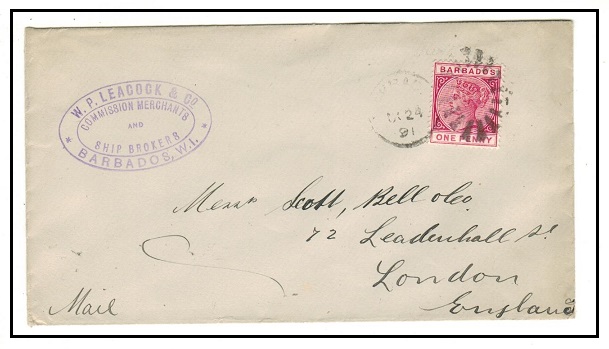 W. P. LEACOCK & Co.
COMMISSION MERCHANTS
AND
SHIP BROKERS
* BARBADOS, W.I. *
BARBADOS
ONE PENNY
24
91
Messrs Scott, Bell & Co.
72 Leadenhall St
London
England
Mail